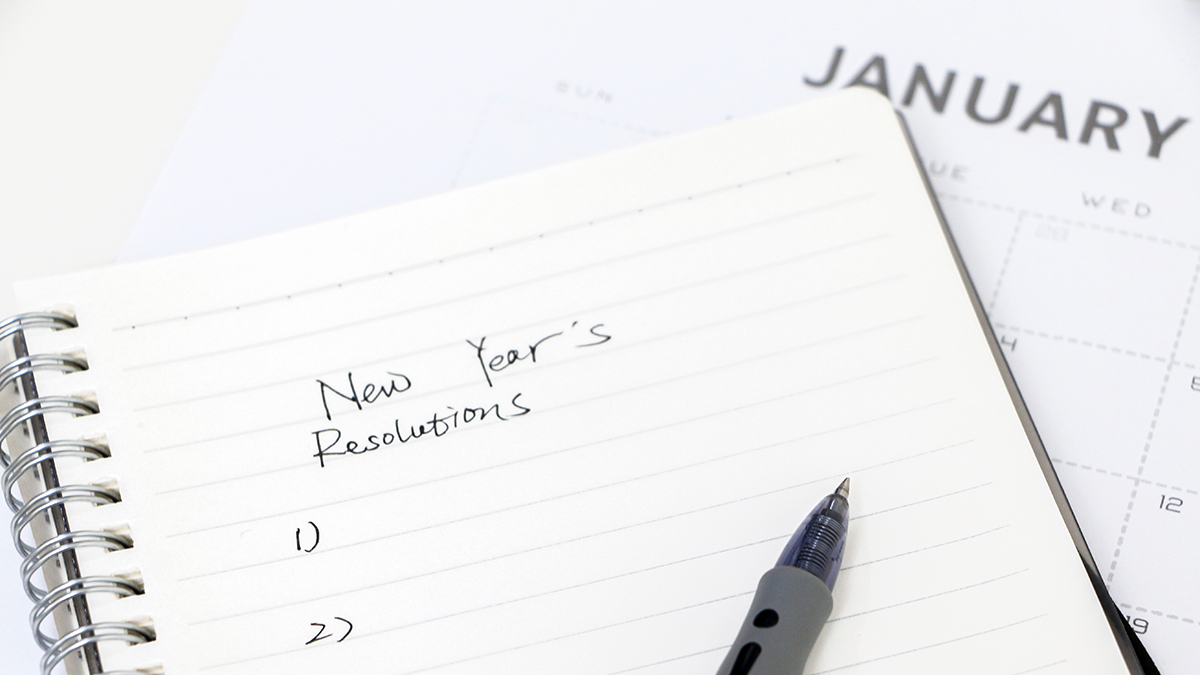 JANUARY
SUN
UE
WED
28
4
5
12
19
New Year's
Resolutions
1)
2)